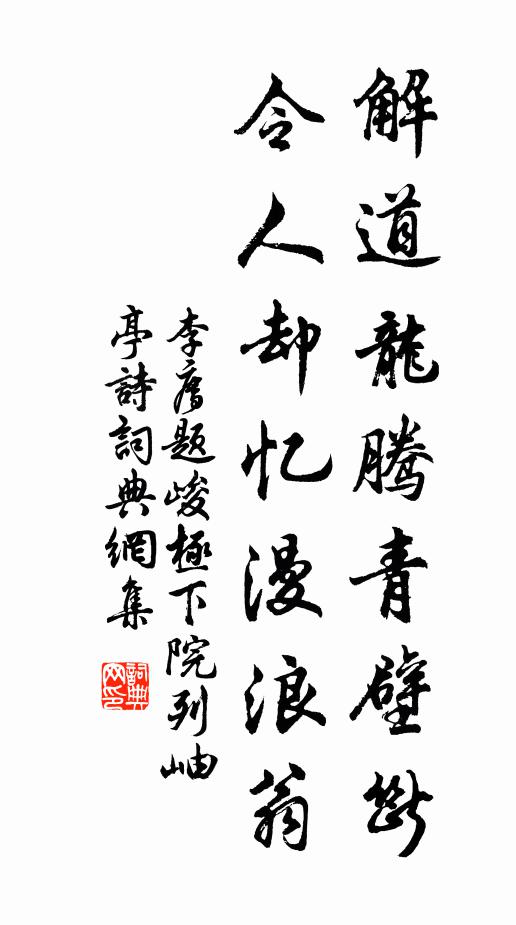 解道龍腾青壁断
令人却忆漫浪翁
李廌题峻極下院列岫
亭詩詞典網集
詞典